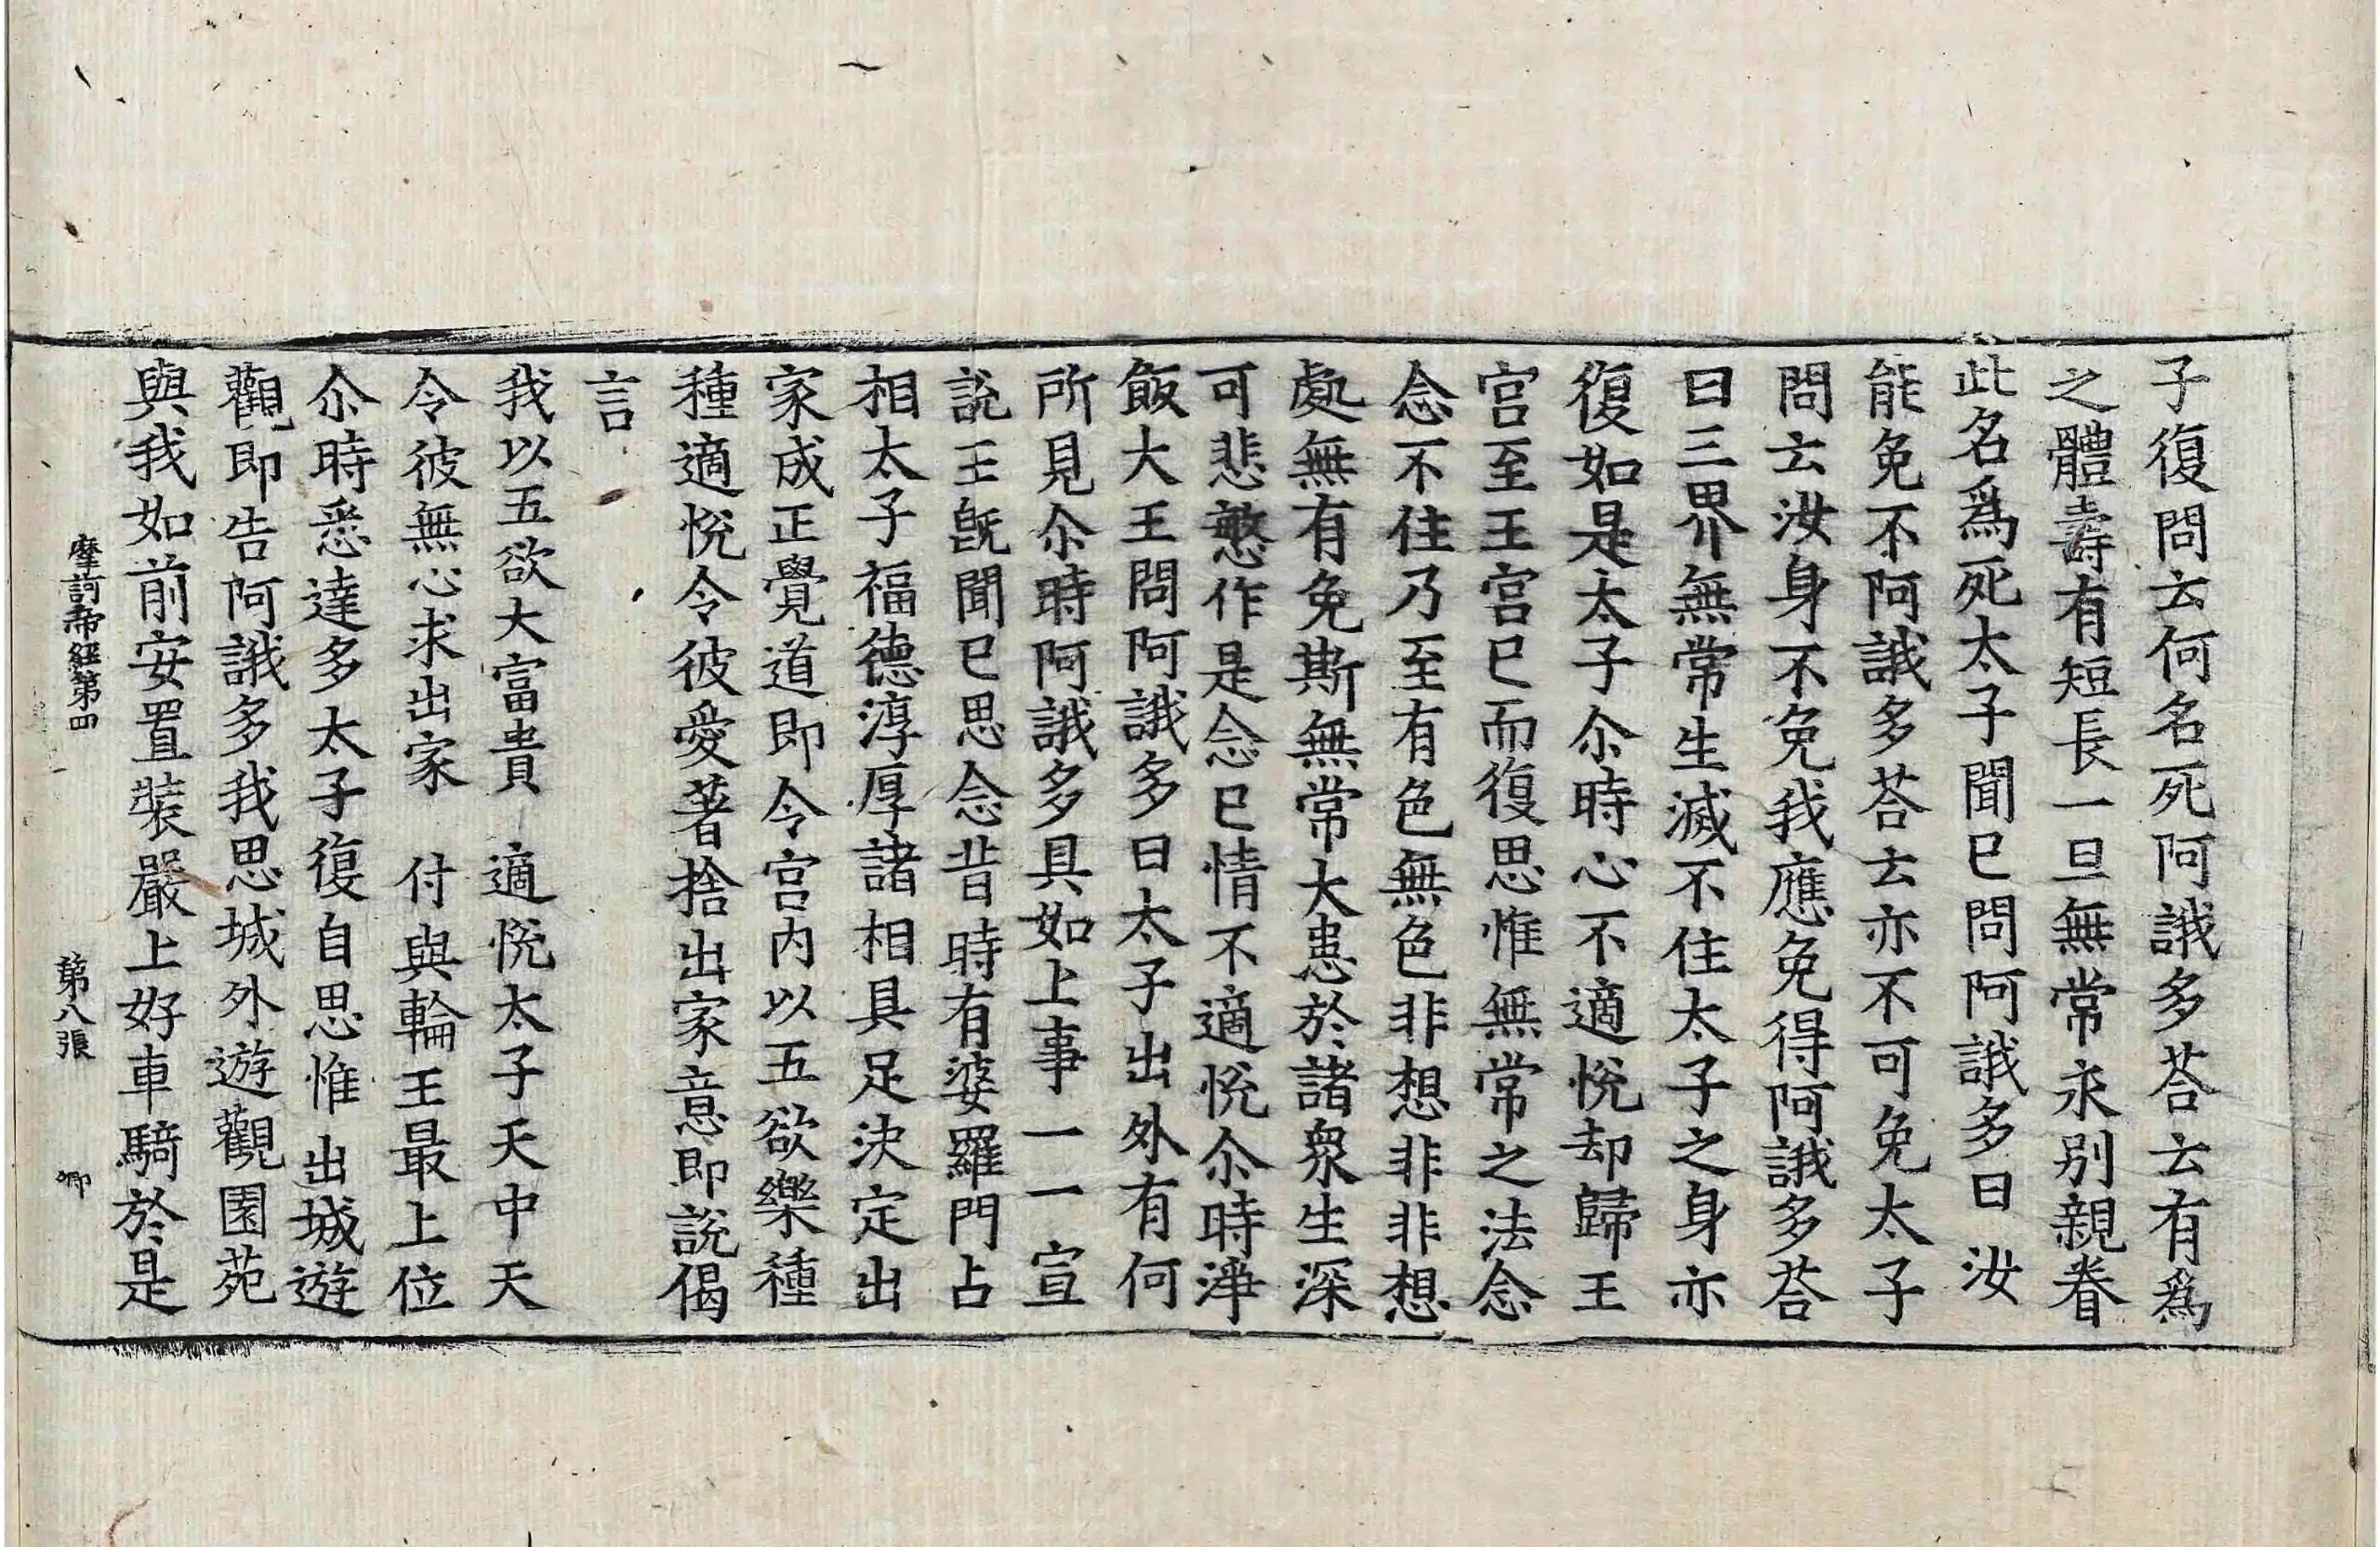 子復問云何名死阿誐多荅云有爲
之體壽有短長一旦無常永別親眷
此名爲死太子聞已問阿誐多曰汝
能免不阿誐多荅云亦不可免太子
問云汝身不免我應免得阿誐多荅
曰三界無常生滅不住太子之身亦
復如是太子尒時心不適悅却歸王
宫至王宫已而復思惟無常之法念
念不住乃至有色無色非想非非想
處無有免斯無常大患於諸衆生深
可悲愍作是念已情不適悅尒時淨
飯大王問阿誐多曰太子出外有何
所見尒時阿誐多具如上事一一宣
說王旣聞已思念昔時有婆羅門占
相太子福德淳厚諸相具足決定出
家成正覺道即令宫内以五欲樂種
種適悅令彼愛著捨出家意即說偈
言
我以五欲大富貴　適悅太子天中天
令彼無心求出家　付與輪王最上位
尒時悉達多太子復自思惟出城遊
觀即告阿誐多我思城外遊觀園苑
與我如前安置裝嚴上好車騎於是
摩訶帝經第四　第八張　卿